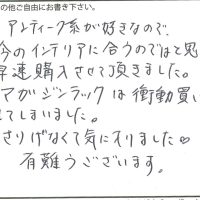 の他ご自由にお書き下さい。
アンティーク系が好きなので、
今のインテリアに合うのではと思
早速購入させて頂きました。
マガジンラックは衝動買い
てしまいました。
さりげなくて気に入りました♡
有難うございます。